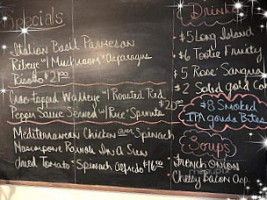 Specials
Italian Basil Parmesan
Ribeye w/ Mushroom "Asparagus
Risotto $2
Topped Walleye w/ Roasted Red
Pepper Sauce Served w/ Rice Sprouts
Mediterranean Chicken over Spinach
Ravioli In A
Tomato Spinach Alfredo $16.00
Drinks
$5 Long Island
$6 Tootie Fruity
$5 Rose Sangria
$2 Solid Gold
$8 Smoked
IPA gouda Bites
Soups
French Onion
Cheesy Bacon